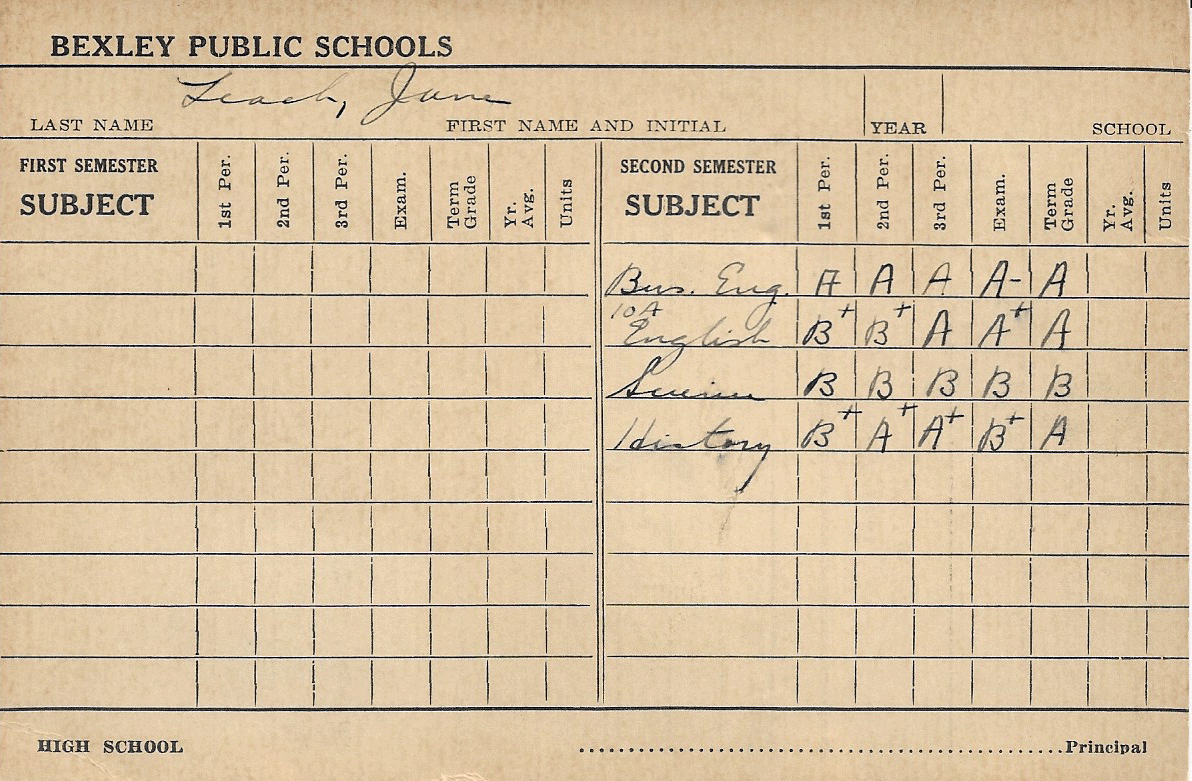 BEXLEY PUBLIC SCHOOLS
Leach, Jane
LAST NAME FIRST NAME AND INITIAL YEAR SCHOOL
FIRST SEMESTER SUBJECT 1st Per. 2nd Per. 3rd Per. Exam. Term Grade Yr. Avg. Units SECOND SEMESTER SUBJECT 1st Per. 2nd Per. 3rd Per. Exam. Term Grade Yr. Avg. Units
Bus. Eng. A A A A- A
10A
English B+ B+ A A+ A
Science B B B B B
History B+ A+ A+ B+ A
HIGH SCHOOL ........................................................Principal